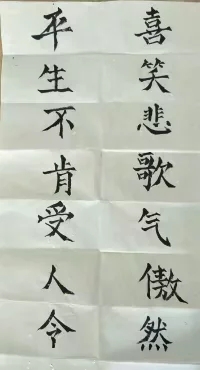 喜笑悲歌气傲然
平生不肯受人令